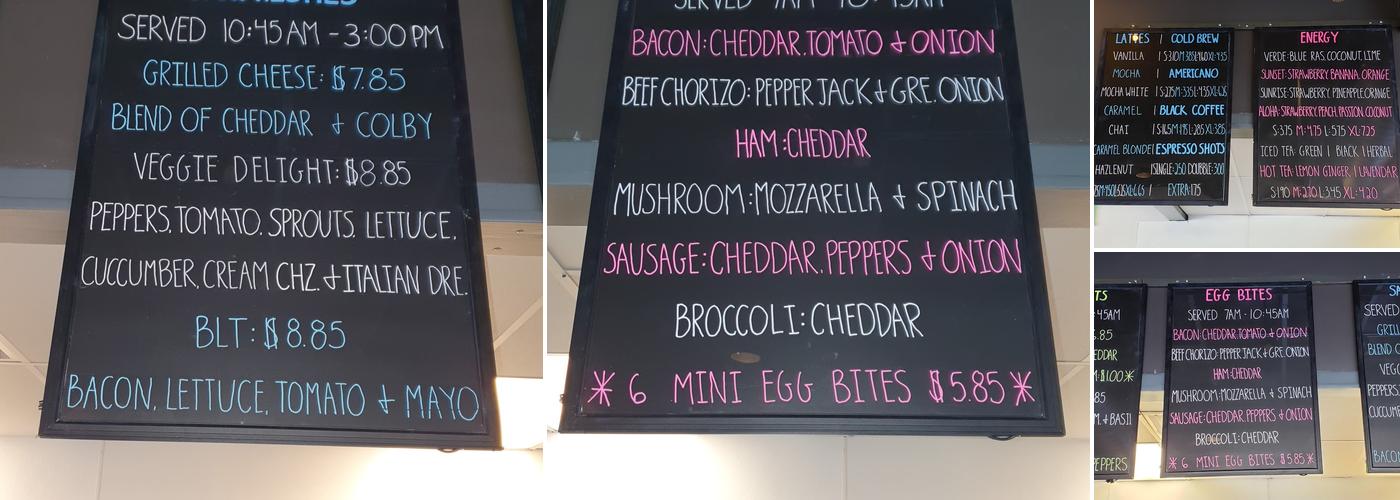 SERVED 10:45AM - 3:00PM
GRILLED CHEESE: $7.85
BLEND OF CHEDDAR & COLBY
VEGGIE DELIGHT: $8.85
PEPPERS, TOMATO, SPROUTS, LETTUCE,
CUCCUMBER, CREAM CHZ. & ITALIAN DRE.
BLT: $8.85
BACON, LETTUCE, TOMATO & MAYO
SERVED 7AM - 10:45AM
BACON: CHEDDAR, TOMATO & ONION
BEEF CHORIZO: PEPPER JACK & GRE. ONION
HAM: CHEDDAR
MUSHROOM: MOZZARELLA & SPINACH
SAUSAGE: CHEDDAR, PEPPERS & ONION
BROCCOLI: CHEDDAR
* 6 MINI EGG BITES $5.85 *
LATTES | COLD BREW
VANILLA
MOCHA | AMERICANO
MOCHA WHITE
CARAMEL | BLACK COFFEE
CHAI
CARAMEL BLONDE | ESPRESSO SHOTS
HAZLENUT | SINGLE: 2.50 DOUBLE: 3.00
EXTRA: 1.75
ENERGY
VERDE: BLUE RAS, COCONUT, LIME
SUNSET: STRAWBERRY, BANANA, ORANGE
SUNRISE: STRAWBERRY, PINEAPPLE, ORANGE
ALOHA: STRAWBERRY, PEACH, PASSION, COCONUT
S: 3.75 M: 4.75 L: 5.75 XL: 7.25
ICED TEA: GREEN | BLACK | HERBAL
HOT TEA: LEMON GINGER | LAVENDAR
S: 1.90 M: 2.70 L: 3.45 XL: 4.20
TS
:45AM
.85
EDDAR
$1.00*
85
M. & BASIL
PEPPERS
EGG BITES
SERVED 7AM - 10:45AM
BACON: CHEDDAR, TOMATO & ONION
BEEF CHORIZO: PEPPER JACK & GRE. ONION
HAM: CHEDDAR
MUSHROOM: MOZZARELLA & SPINACH
SAUSAGE: CHEDDAR, PEPPERS & ONION
BROCCOLI: CHEDDAR
* 6 MINI EGG BITES $5.85 *
SA
SERVED
GRILL
BLEND O
VEGG
PEPPERS,
CUCCUM
BACON